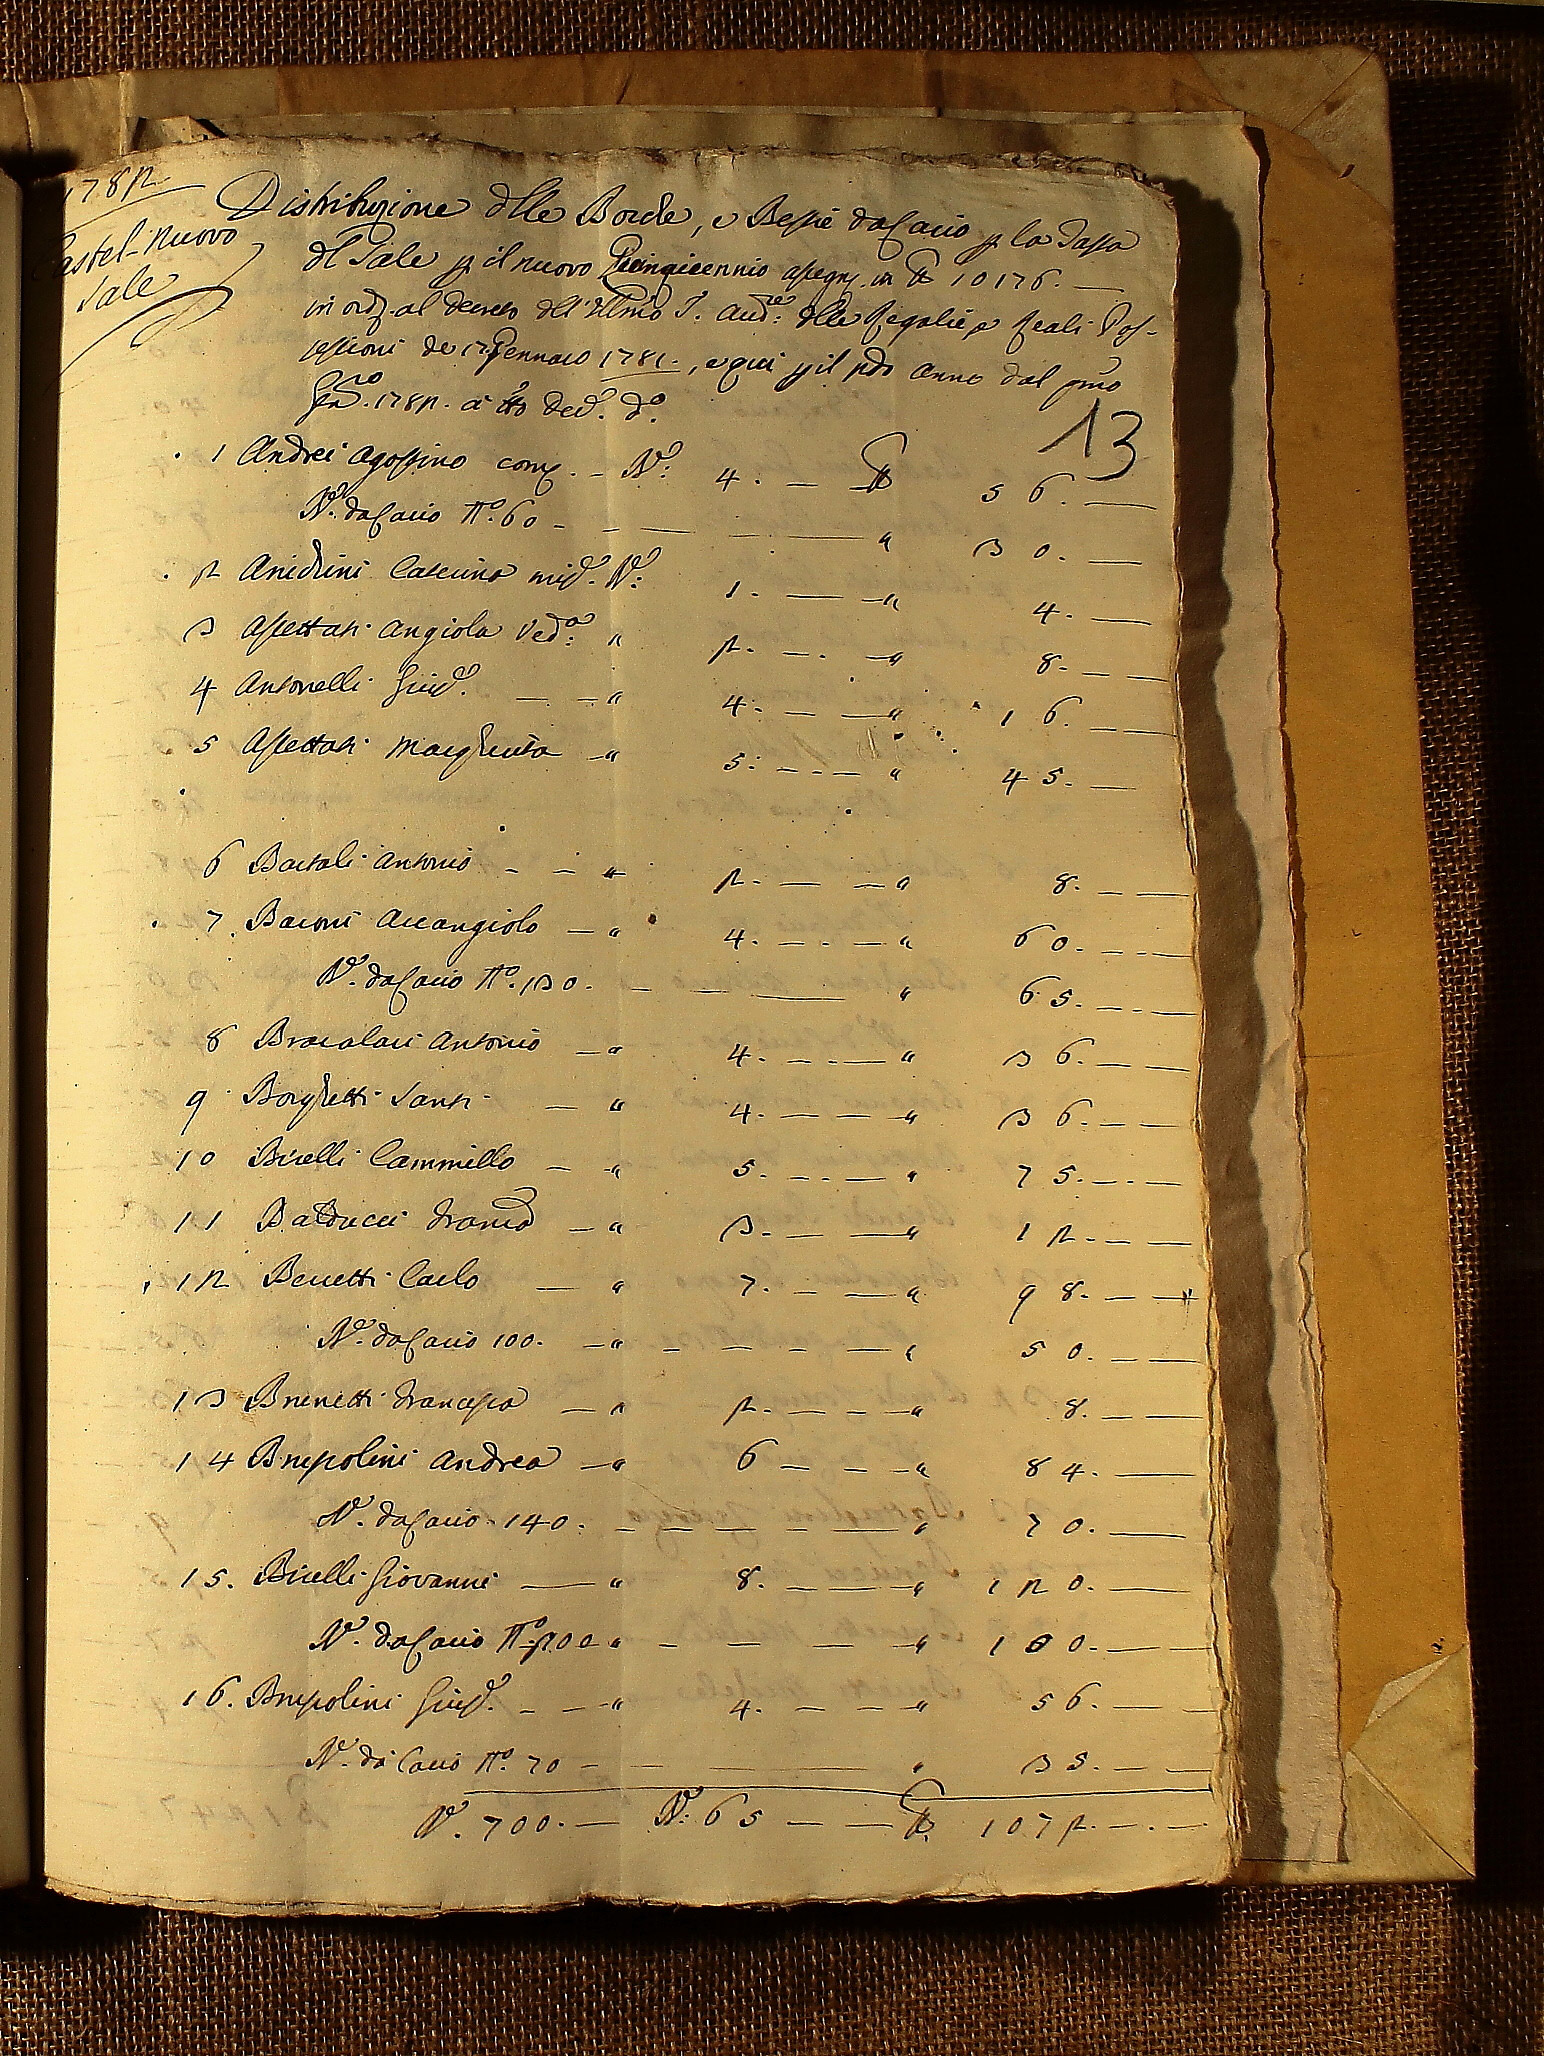 1782.
Castel-nuovo
Sale
Distribuzione dlle Bocche, e Bestie da Cacio p la Tassa
dl Sale p il nuovo Quinquennio assegn. in lb 10176. —
in ord. al decreto dell'Illmo S. Aud.re dlle Regalie e Reali Pos-
sessioni de 17 Gennaio 1781., e qui p il pdo anno dal pmo
Gen.ro 1782. a tto Dec. do
13
1 Andrei Agostino comp. - No: 4. — lb 56. —
No. da Cacio no. 60 - — " 30. —
2 Cascino mig. No: 1. — " 4. —
3 Assettati Angiola Ved.a " 2. — " 8. —
4 Antonelli Giuse. — " 4. — " 16. —
5 Assettati Margherita " 5. — " 45. —
6 Bartali Antonio - - " 2. — " 8. —
7. Baroni Arcangiolo — " 4. — " 60. —
No. da Cacio no. 130. — " 65. —
8 Bracalari Antonio — " 4. — " 36. —
9 Borghetti Santi — " 4. — " 36. —
10 Birelli Cammillo — " 5. — " 75. —
11 Balducci Franco — " 3. — " 12. —
12 Benetti Carlo — " 7. — " 98. —
No. da Cacio 100. — " — " 50. —
13 Brunetti Francesca — " 2. — " 8. —
14 Bruspolini Andrea — " 6 — " 84. —
No. da Cacio 140. — " 70. —
15. Birelli Giovanni — " 8. — " 120. —
No. da Cacio no. 200 " — " 100. —
16. Bruspolini Giuse. — " 4. — " 56. —
No. da Cacio no. 70 — " 35. —
No. 700. — No. 65 — lb. 1072. —